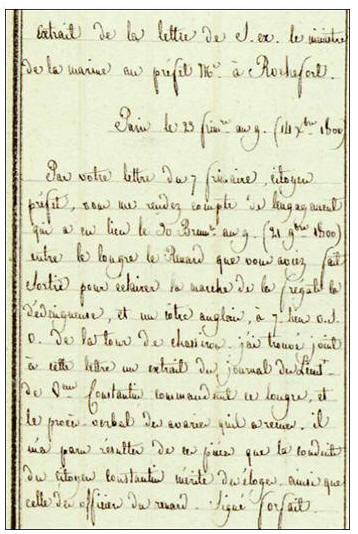 Extrait de la lettre de S. ex. le ministre
de la marine au préfet Me. à Rochefort.
Paris le 23 frimre an 9. (14 Xbre 1800)
Par votre lettre du 7 frimaire, citoyen
préfet, vous me rendez compte de l'engagement
qui a eu lieu le 30 Brumre an 9. (21 9bre 1800)
entre le lougre le Renard que vous avez fait
sortir pour éclairer la marche de la frégate la
dédaigneuse, et un cotre anglais, à 7. lieues o.S.
o. de la tour de chassiron. j'ai trouvé joint
à cette lettre un extrait du journal du Lieut.
de Veau Constantin commandant ce lougre, et
le procès-verbal des avaries qu'il a reçues. il
m'a paru résulter de ces pièces que la conduite
du citoyen constantin mérite des éloges ainsi que
celle des officiers du renard. Signé forfait.